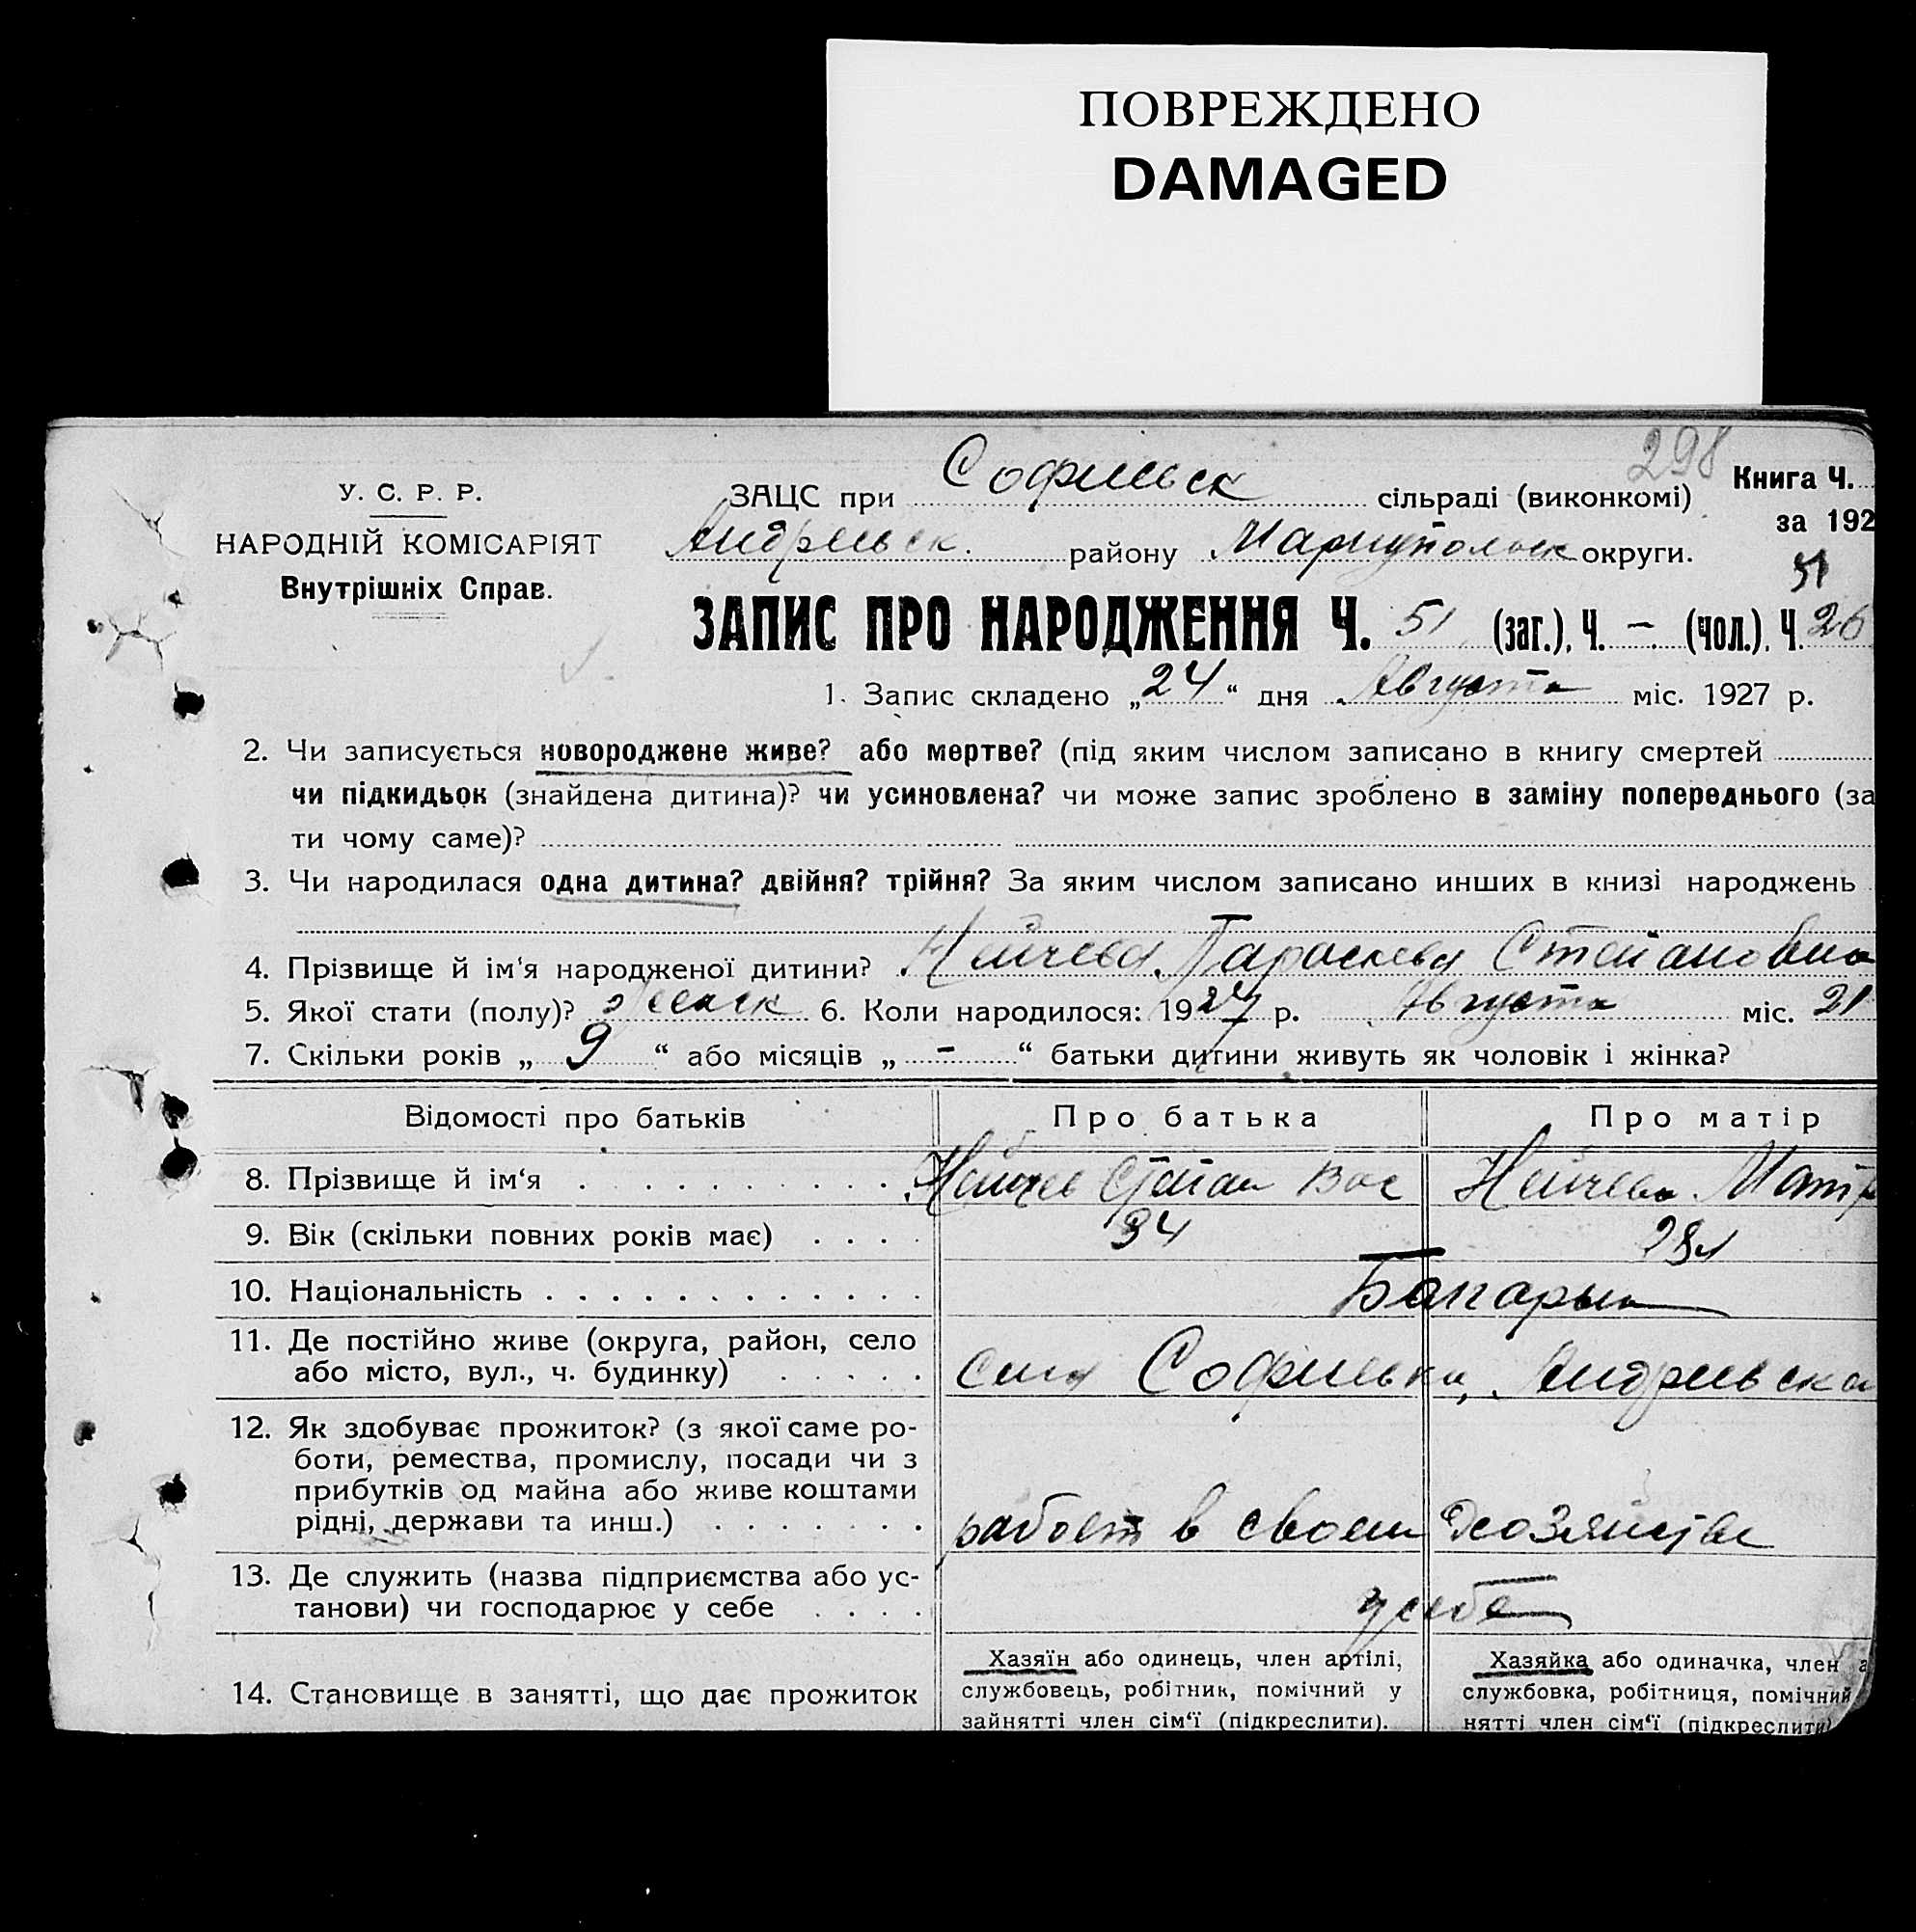 ПОВРЕЖДЕНО
DAMAGED
298
У. С. Р. Р.
НАРОДНІЙ КОМІСАРІЯТ
Внутрішніх Справ.
ЗАЦС при Софиевск сільраді (виконкомі)
Книга Ч.
за 192
Андреевск. району Мариупольск округи.
51
ЗАПИС ПРО НАРОДЖЕННЯ Ч. 51 (заг.), Ч. – (чол.), Ч. 26
1. Запис складено „24“ дня Августа міс. 1927 р.
2. Чи записується новороджене живе? або мертве? (під яким числом записано в книгу смертей
чи підкидьок (знайдена дитина)? чи усиновлена? чи може запис зроблено в заміну попереднього (за
ти чому саме)?
3. Чи народилася одна дитина? двійня? трійня? За яким числом записано инших в книзі народжень
4. Прізвище й ім‘я народженої дитини? Нейчева Параскева Степановна
5. Якої стати (полу)? женск 6. Коли народилося: 1927 р. Августа міс. 21
7. Скільки років „9“ або місяців „-“ батьки дитини живуть як чоловік і жінка?
Відомості про батьків Про батька Про матір
8. Прізвище й ім‘я Нейчев Степан Вас Нейчева Матр
9. Вік (скільки повних років має) 34 28
10. Національність Болгары
11. Де постійно живе (округа, район, село
або місто, вул., ч. будинку) села Софиевки, Андреевска
12. Як здобуває прожиток? (з якої саме ро-
боти, ремества, промислу, посади чи з
прибутків од майна або живе коштами
рідні, держави та инш.) работ в своем хозяйстве
13. Де служить (назва підприємства або ус-
танови) чи господарює у себе у себе
14. Становище в занятті, що дає прожиток
Хазяїн або одинець, член артілі,
службовець, робітник, помічний у
зайнятті член сім‘ї (підкреслити).
Хазяйка або одиначка, член а
службовка, робітниця, помічний
нятті член сім‘ї (підкреслити)